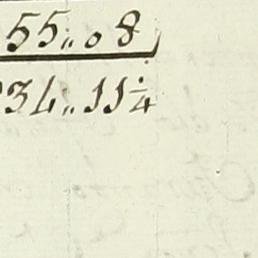 55,,08
34,,11¼